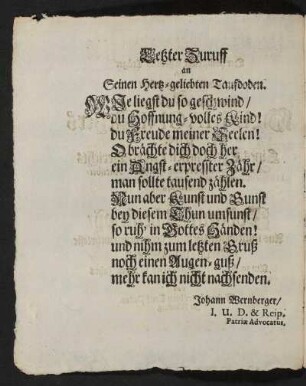 Letzter Zuruff
an
Seinen Hertz-geliebten Taufdoden.
WIe liegst du so geschwind/
du Hoffnung-volles Kind!
du Freude meiner Seelen!
O brächte dich doch her
ein Angst-erpresster Zähr/
man sollte tausend zählen.
Nun aber Kunst und Gunst
bey diesem Thun umsunst/
so ruh' in Gottes Händen!
und nihm zum letzten Gruß
noch einen Augen-guß/
mehr kan ich nicht nachsenden.
Johann Wernberger/
I. U. D. & Reip.
Patriæ Advocatus.